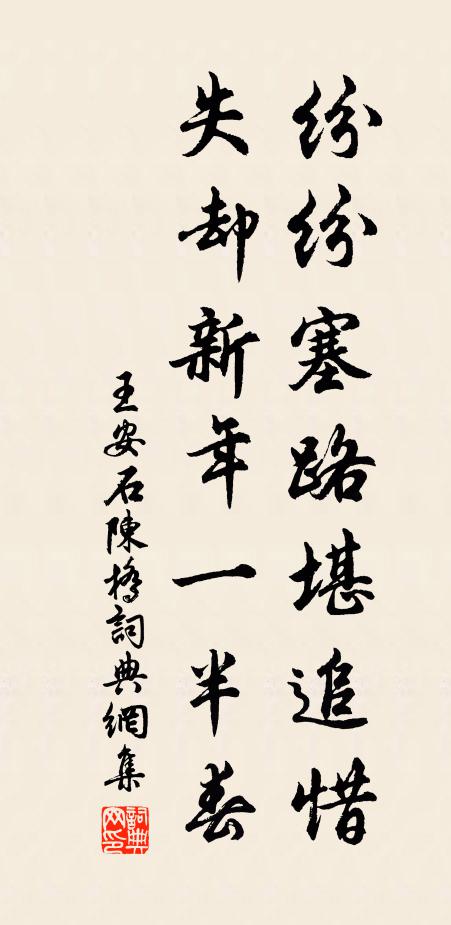 紛紛塞路堪追惜
失却新年一半春
王安石陳橋詞典網集
詞典網印